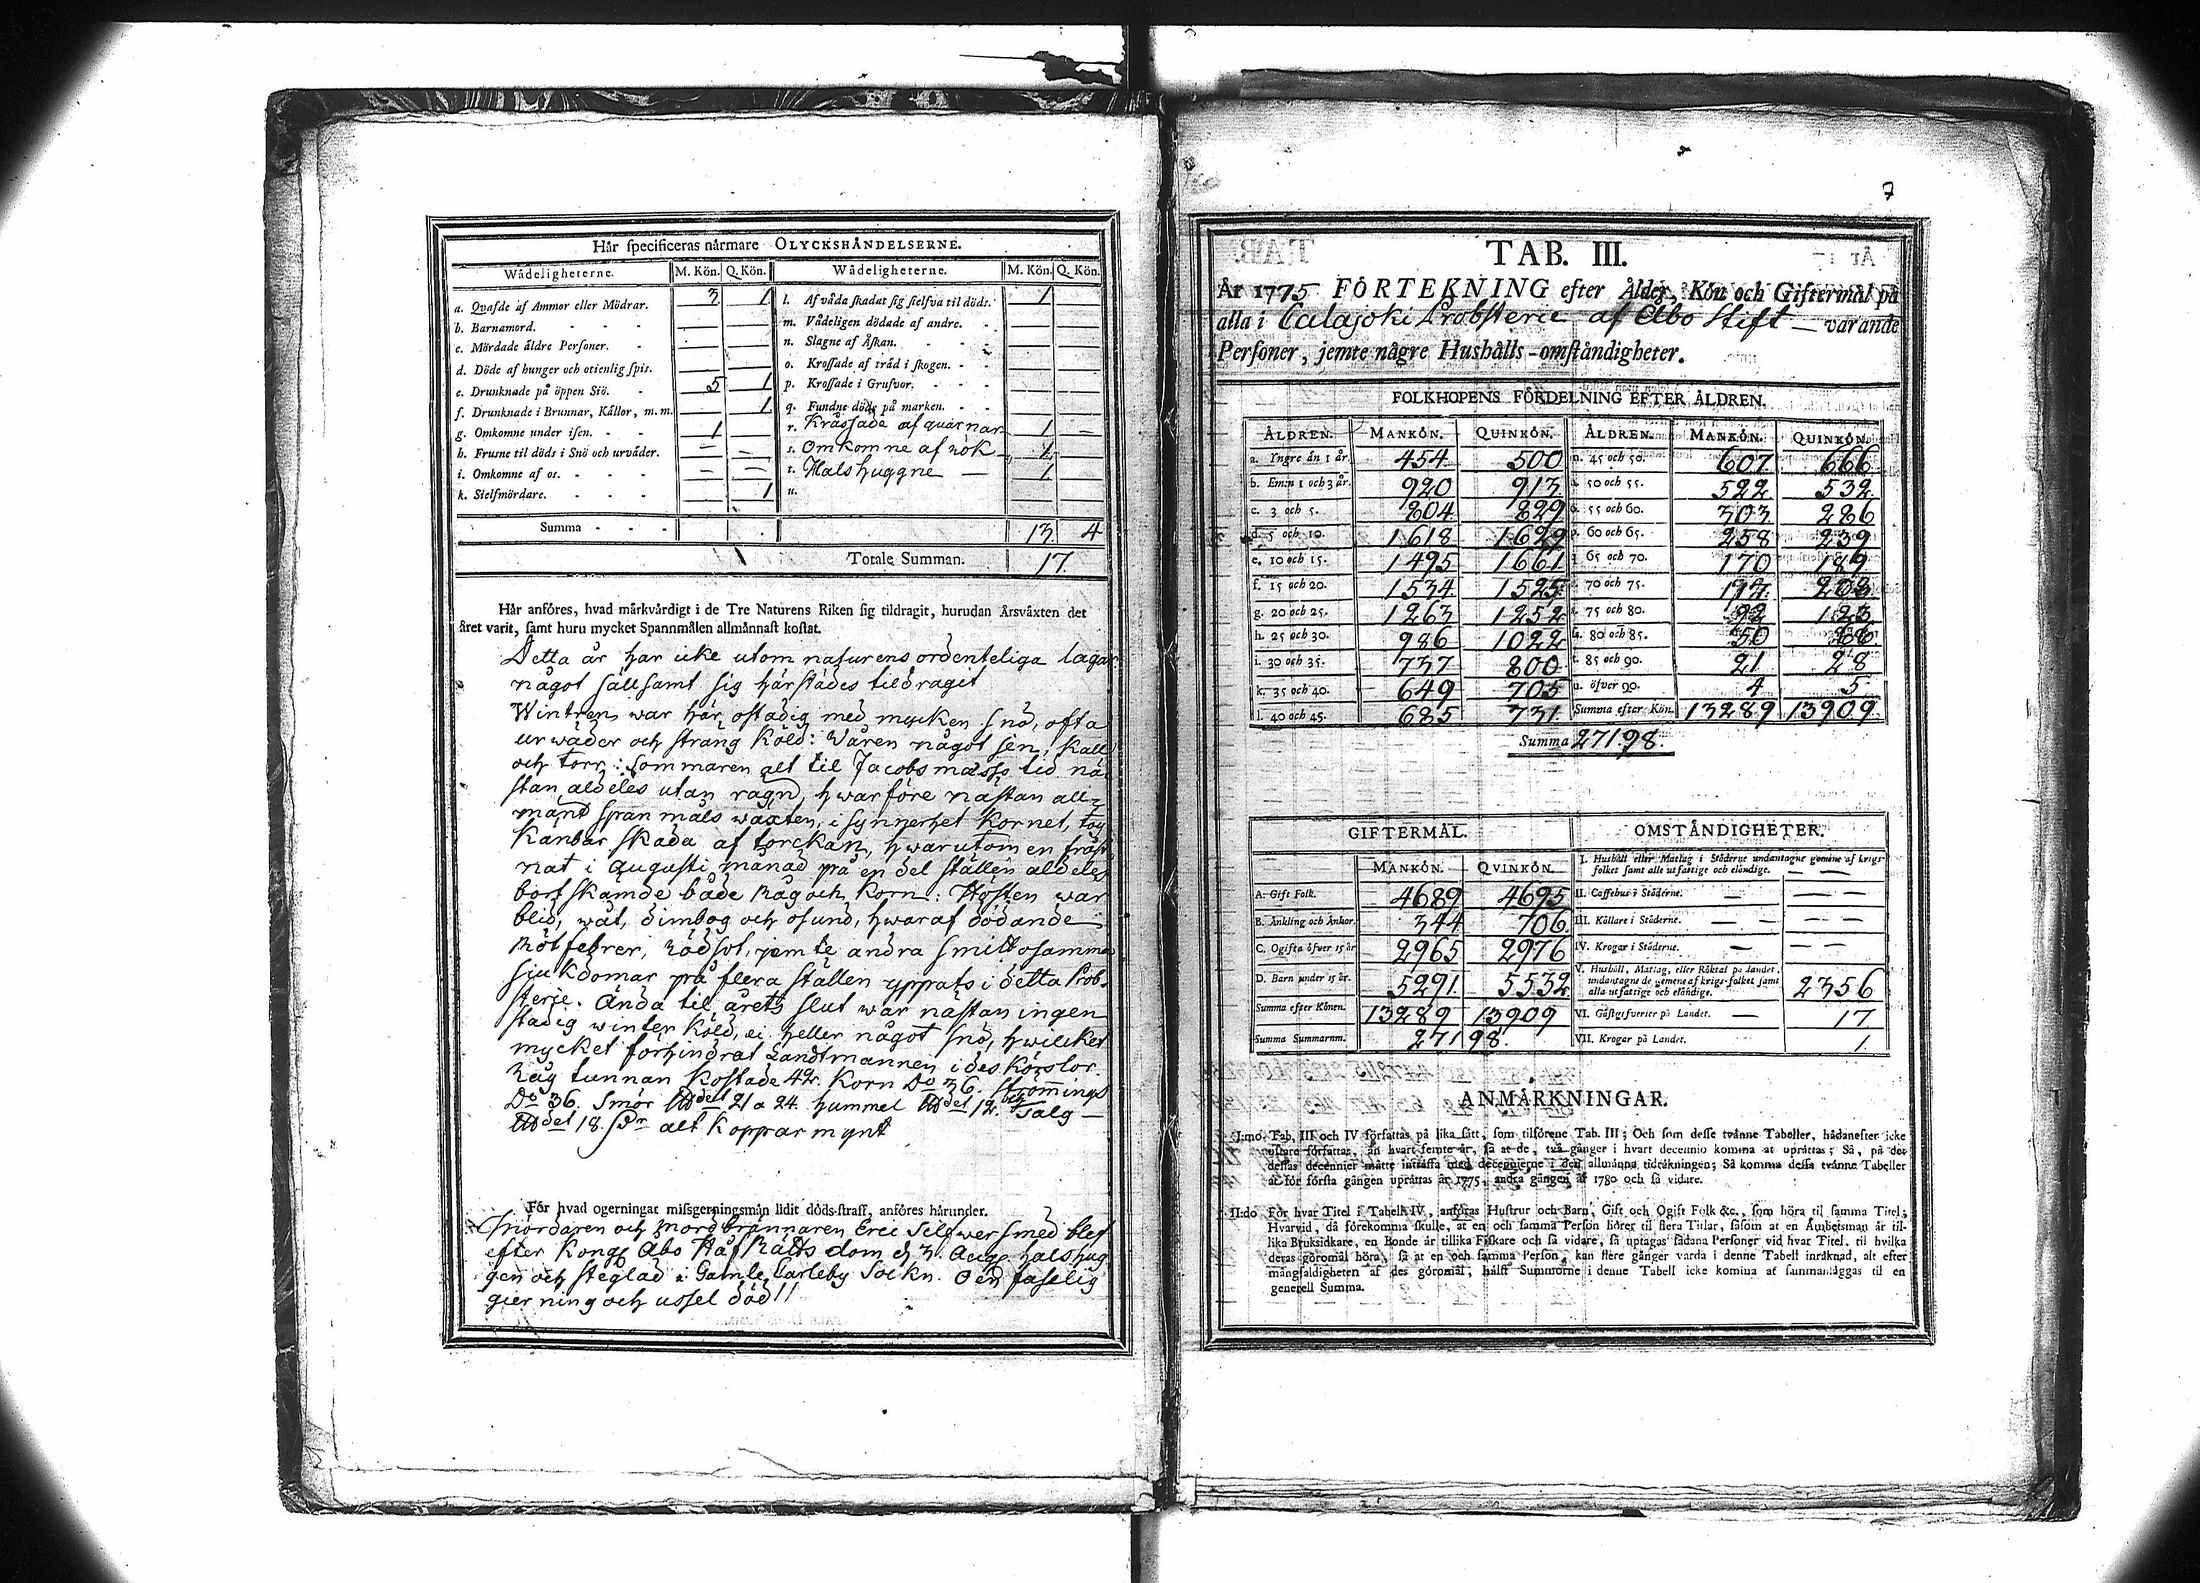 Hår specificeras nårmare OLYCKSHÅNDELSERNE.
Wådeligheterne. M. Kön. Q. Kön. Wådeligheterne. M. Kön. Q. Kön.
a. Qvafde af Ammor eller Mödrar. 3 1 l. Af våda skadat sig sielfva til döds. 1
b. Barnamord. - - - m. Vådeligen dödade af andre. -
c. Mördade åldre Personer. - n. Slagne af Åskan. - - -
d. Döde af hunger och otienlig spis. o. Krossade af tråd i skogen. - -
e. Drunknade på öppen Siö. - 5 1 p. Krossade i Grufvor. - - -
f. Drunknade i Brunnar, Kållor, m. m. 1 q. Fundne döde på marken. - -
g. Omkomne under isen. - - 1 r. Kråssade af quarnar 1 –
h. Frusne til döds i Snö och urvåder. – – s. Omkomne af rök 1
i. Omkomne af os. - - - – – t. Halshuggne — 1
k. Sielfmördare. - - - 1 u.
Summa - - - 13 4
Totale Summan. 17
Hår anföres, hvad mårkvårdigt i de Tre Naturens Riken sig tildragit, hurudan Årsvåxten det
året varit, samt huru mycket Spannmålen allmånnast kostat.
Detta år har icke utom naturens ordenteliga lagar
något sällsamt sig härstädes tildragit
Wintren war här ostadig med mycken snö, ofta
urwäder och sträng köld: Våren något sen, kall
och torr: sommaren alt til Jacobsmässo tid nä
stan aldeles utan rägn, hwarföre nästan all-
mänt spanmåls wäxten, i synnerhet Kornet, tog
kanbar skada af torckan, hwarutom en fråst
nat i Augusti månad på en del ställen aldeles
bortskämde både Råg och Korn. Hösten war
blid, wåt, dimbog och osund, hwaraf dödande
Rötfebrer, Rödsot, jemte andra smittosamma
sjukdomar på flera ställen yppats i detta Prob-
sterie. Ända til årets slut war nästan ingen
stadig winter köld, ei heller något snö, hwilcket
mycket förhindrat Landtmannen i des körslor.
Råg tunnan kostade 42. Korn Do 36. Strömmings
Do 36. Smör det 21 a 24 hummel det 12. och Talg —
det 18. Dr alt Kopparmynt
För hvad ogerningar missgerningsmån lidit döds-straff, anföres hårunder.
Mördaren och mordbrännaren Eric Silfwersmed blef
efter Kongl Åbo HåfRätts dom d 3. Aug. halshug
gen och steglad i Gamle Carleby Sockn. O en faselig
gierning och ussel död!!
7
TAB. III.
År 1775 FÖRTEKNING efter Ålder, Kön och Giftermål på
alla i Calajoki Probsterie af Åbo Stift — varande
Personer, jemte någre Hushålls-omståndigheter.
FOLKHOPENS FÖRDELNING EFTER ÅLDREN.
ÅLDREN. MANKÖN. QUINKÖN. ÅLDREN. MANKÖN. QUINKÖN.
a. Yngre ån 1 år. 454 500 m. 45 och 50. 607 666
b. Em:n 1 och 3 år. 920 913 n. 50 och 55. 522 532
c. 3 och 5. 804 829 o. 55 och 60. 303 286
d. 5 och 10. 1618 1629 p. 60 och 65. 258 239
e. 10 och 15. 1495 1661 q. 65 och 70. 170 189
f. 15 och 20. 1534 1525 r. 70 och 75. 203
g. 20 och 25. 1263 1252 s. 75 och 80. 92 123
h. 25 och 30. 986 1022 80 och 85. 50
i. 30 och 35. 737 800 t. 85 och 90. 21 28
k. 35 och 40. 649 705 u. öfver 90. 4 5
l. 40 och 45. 685 731 Summa efter Kön. 13289 13909
Summa 27198.
GIFTERMÅL. OMSTÅNDIGHETER.
MANKÖN. QVINKÖN. I. Hushåll eller Matlag i Städerne undantagne gemene af krigs-
folket samt alle utfattige och elåndige. — —
A. Gift Folk. 4689 4695 II. Caffehus i Städerne. — — —
B. Ånkling och Ånkor. 344 706 III. Kållare i Städerne. — — —
C. Ogifta öfver 15 år 2965 2976 IV. Krogar i Städerne. — — —
D. Barn under 15 år. 5291 5532 V. Hushåll, Matlag, eller Röktal på landet,
undantagne de gemene af krigs-folket samt
alla utfattige och elåndige. 2356
Summa efter Könen. 13289 13909 VI. Gåstgifverier på Landet. — 17
Summa Summarum. 27198. VII. Krogar på Landet. 1
ANMÅRKNINGAR.
I:mo. Tab. III och IV författas på lika sått, som tilförene Tab. III; Och som desse tvånne Tabeller, hådanefter icke
oftare författas, ån hvart femte år, så at de, två gånger i hvart decennio komma at upråttas; Så, på det
dessas decennier måtte intråffa med decennierne i den allmånna tidråkningen; Så komma dessa tvånne Tabeller
at för första gången upråttas år 1775, andra gången år 1780 och så vidare.
II:do För hvar Titel i Tabell IV, anföras Hustrur och Barn, Gift och Ogift Folk &c., som höra til samma Titel;
Hvarvid, då förekomma skulle, at en och samma Person hörer til flera Titlar, såsom at en Åmbetsman år til-
lika Bruksidkare, en Bonde år tillika Fiskare och så vidare, så uptagas sådana Personer vid hvar Titel, til hvilka
deras göromål höra, så at en och samma Person, kan flere gånger varda i denne Tabell inråknad, alt efter
mångfaldigheten af des göromål, hålst Summorne i denne Tabell icke komma at summanlåggas til en
generell Summa.